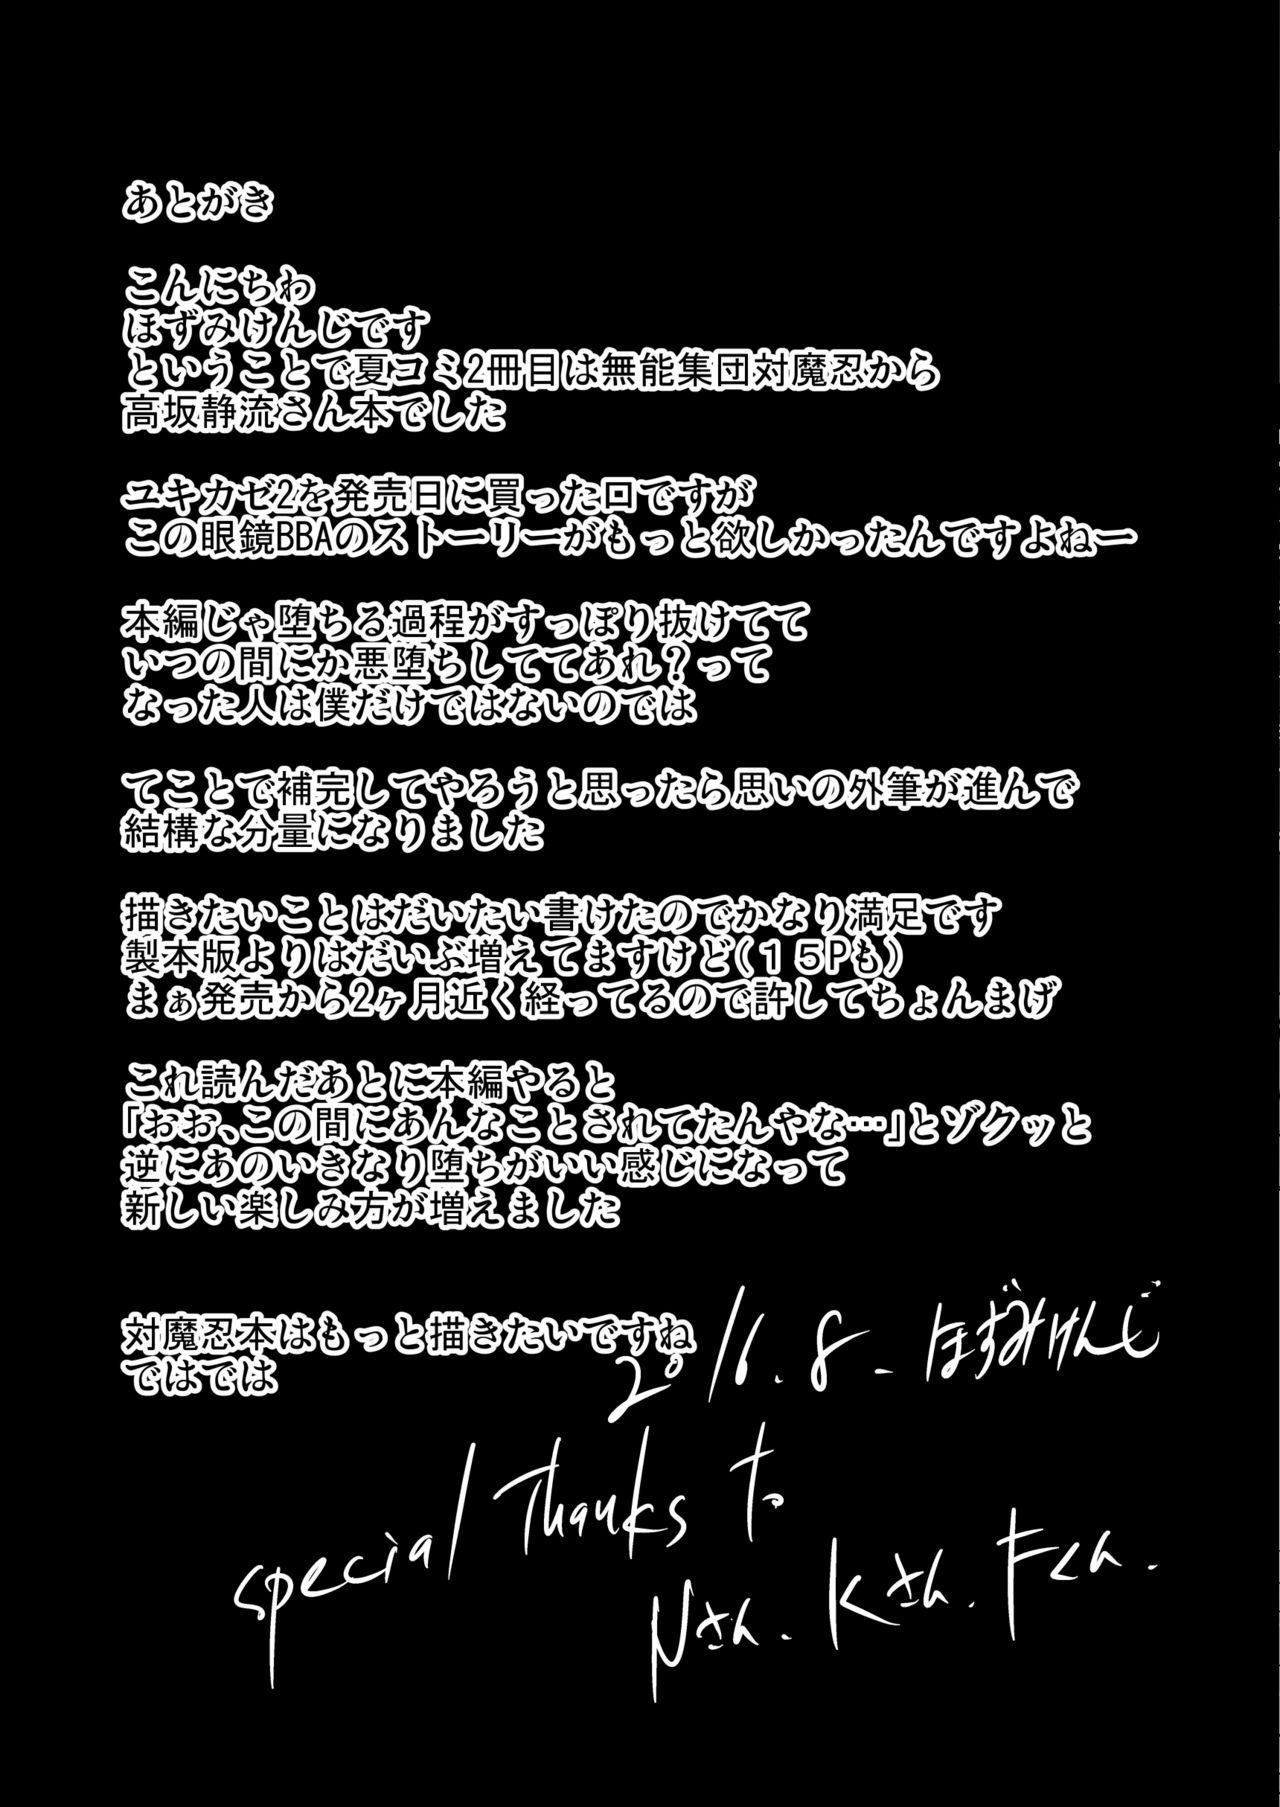 あとがき
こんにちわ
ほずみけんじです
ということで夏コミ2冊目は無能集団対魔忍から
高坂静流さん本でした
ユキカゼ2を発売日に買った口ですが
この眼鏡BBAのストーリーがもっと欲しかったんですよねー
本編じゃ堕ちる過程がすっぽり抜けてて
いつの間にか悪堕ちしててあれ？って
なった人は僕だけではないのでは
てことで補完してやろうと思ったら思いの外筆が進んで
結構な分量になりました
描きたいことはだいたい書けたのでかなり満足です
製本版よりはだいぶ増えてますけど(１５Pも)
まぁ発売から2ヶ月近く経ってるので許してちょんまげ
これ読んだあとに本編やると
「おぉ、この間にあんなことされてたんやな…」とゾクッと
逆にあのいきなり堕ちがいい感じになって
新しい楽しみ方が増えました
対魔忍本はもっと描きたいですね
ではでは
2016.8. ほずみけんじ
special Thanks to
Nさん. Kさん. Fくん.